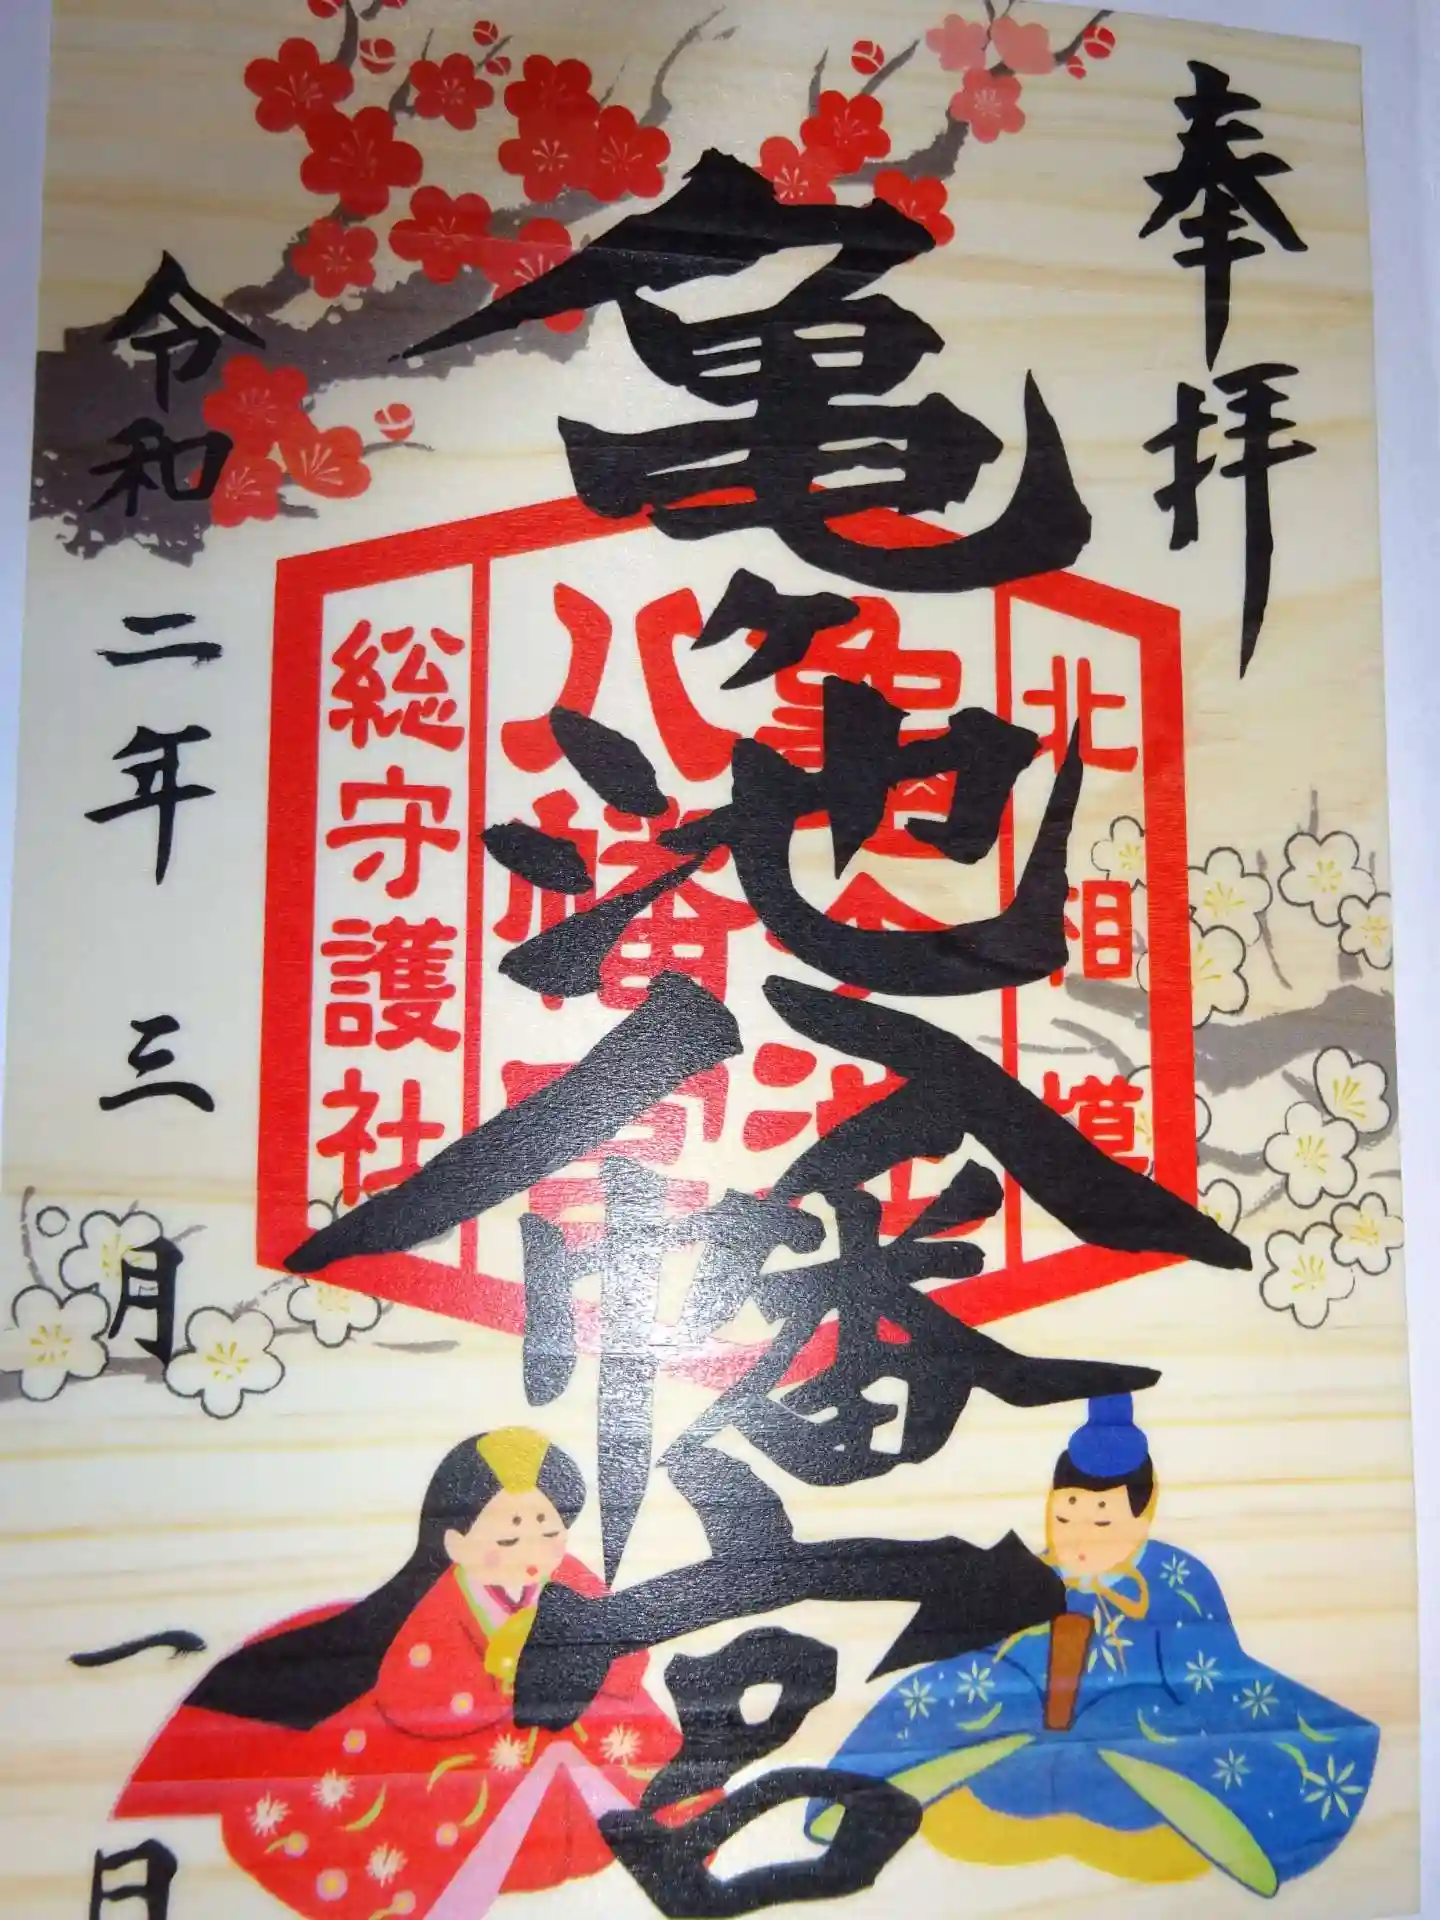 奉拝
亀ヶ池八幡宮
北相模
亀ヶ池
八幡宮
総守護社
令和二年三月一日